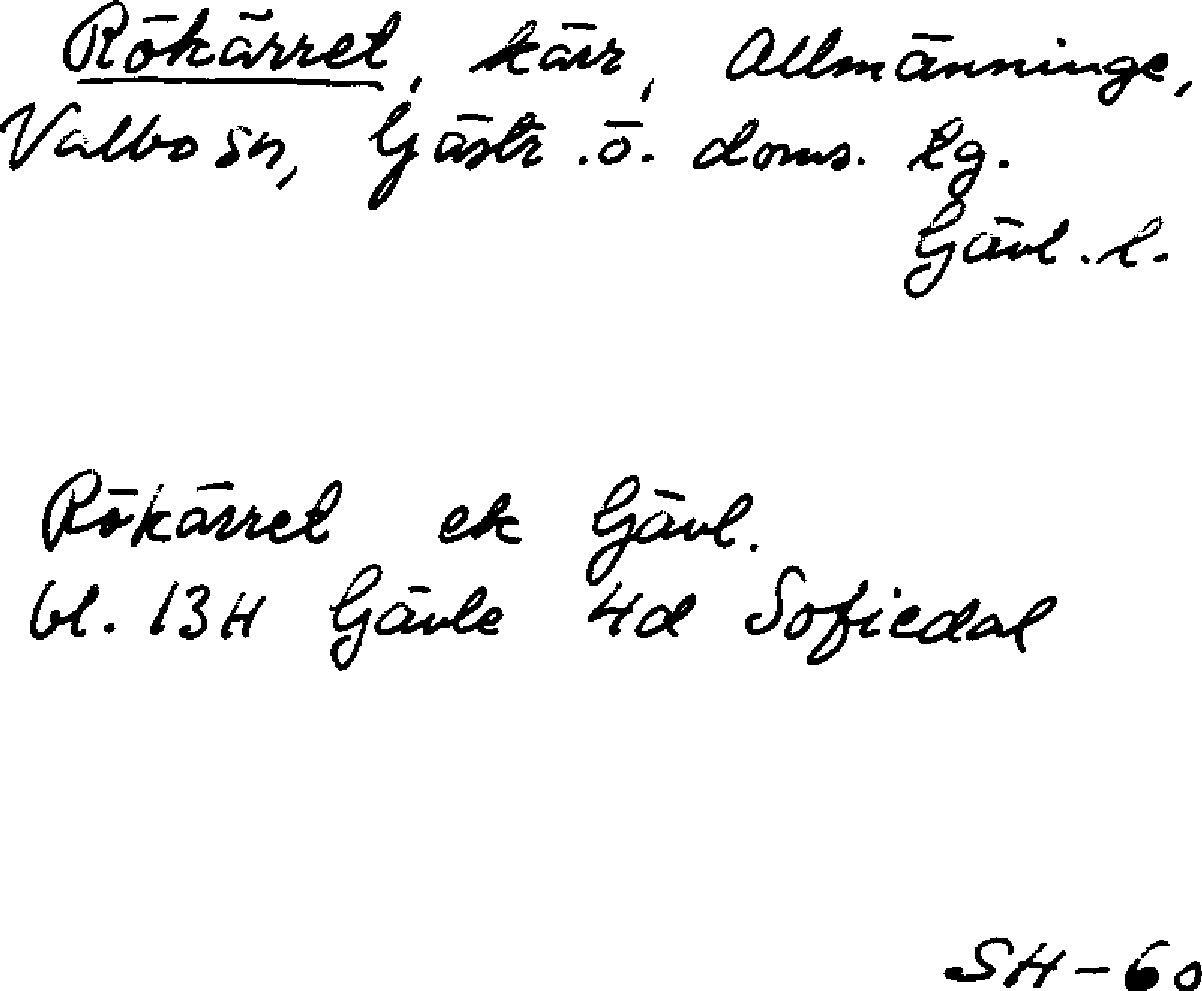 Rökärret, kärr, Allmänninge,
Valbo sn, Gästr. ö. doms. tg.
Gävl. l.
Rökärret ek Gävl.
bl. 13H Gävle 4d Sofiedal
SH-60